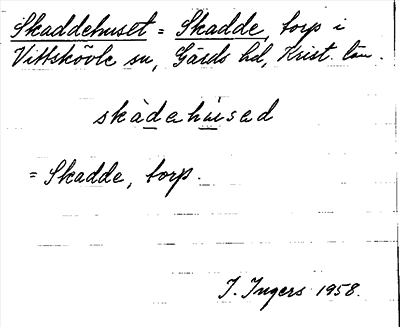 Skaddehuset = Skadde, torp i
Vittskövle sn, Gärds hd, Krist. län.
skàdehúised
= Skadde, torp.
I. Ingers 1958.